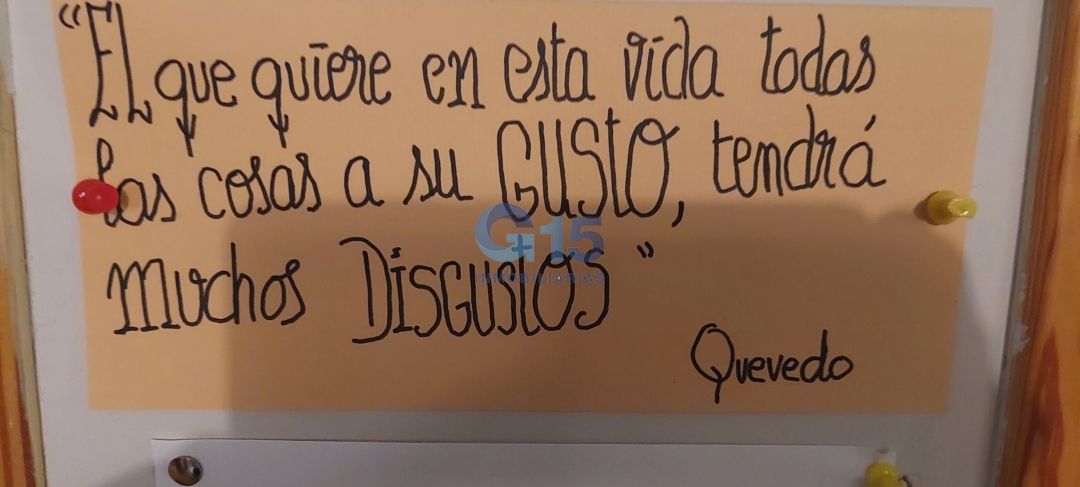 “El que quiere en esta vida todas
las cosas a su GUSTO, tendrá
muchos DISGUSTOS”
Quevedo
G+15
INMOBILIARIAS